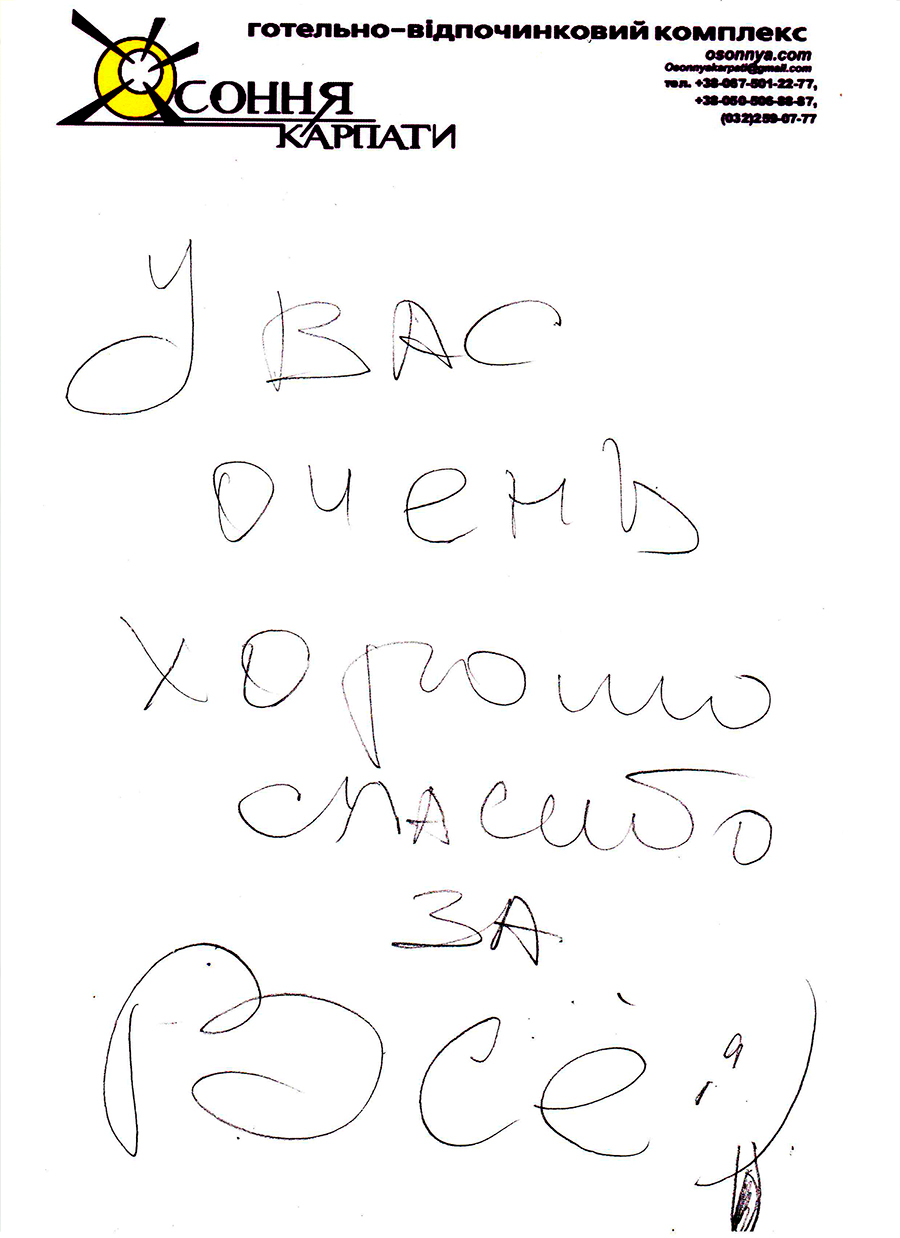 готельно-відпочинковий комплекс
ОСОННЯ
КАРПАТИ
osonnya.com
Osonnyakarpati@gmail.com
тел. +38-067-501-22-77,
+38-050-506-88-87,
(032)259-07-77
У ВАС
очень
хорошо
спасибо
ЗА
Всё